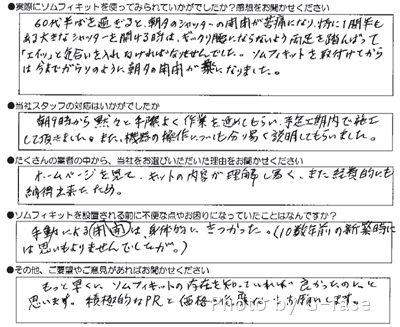 ●実際にソムフィキットを使ってみられていかがでしたか？感想をお聞かせください
60代半ばを過ぎると、朝夕のシャッターの開閉が苦痛になり、特に1間半も
ある大きなシャッターを開ける時は、ぎっくり腰にならないよう両足を踏んばって
「エイッ」と気合いを入れなければなりませんでした。ソムフィキットを取付けてから
は今までがウソのように朝夕の開閉が楽になりました。
●当社スタッフの対応はいかがでしたか
朝9時から黙々と手際よく作業を進めてもらい、予定工期内で施工
して頂きました。また、機器の操作についても分り易く説明してもらいました。
●たくさんの業者の中から、当社をお選びいただいた理由をお聞かせください
ホームページを見て、キットの内容が理解し易く、また経費的にも
納得出来たため。
●ソムフィキットを設置される前に不便な点やお困りになっていたことはなんですか？
手動による開閉は、身体的にきつかった。(10数年前の新築時に
は思いもよりませんでしたが。)
●その他、ご要望やご意見があればお聞かせください
もっと早くに、ソムフィキットの存在を知っていれば良かったのに、と
思います。積極的なPRと価格
お願いします。
Photo by G-rase